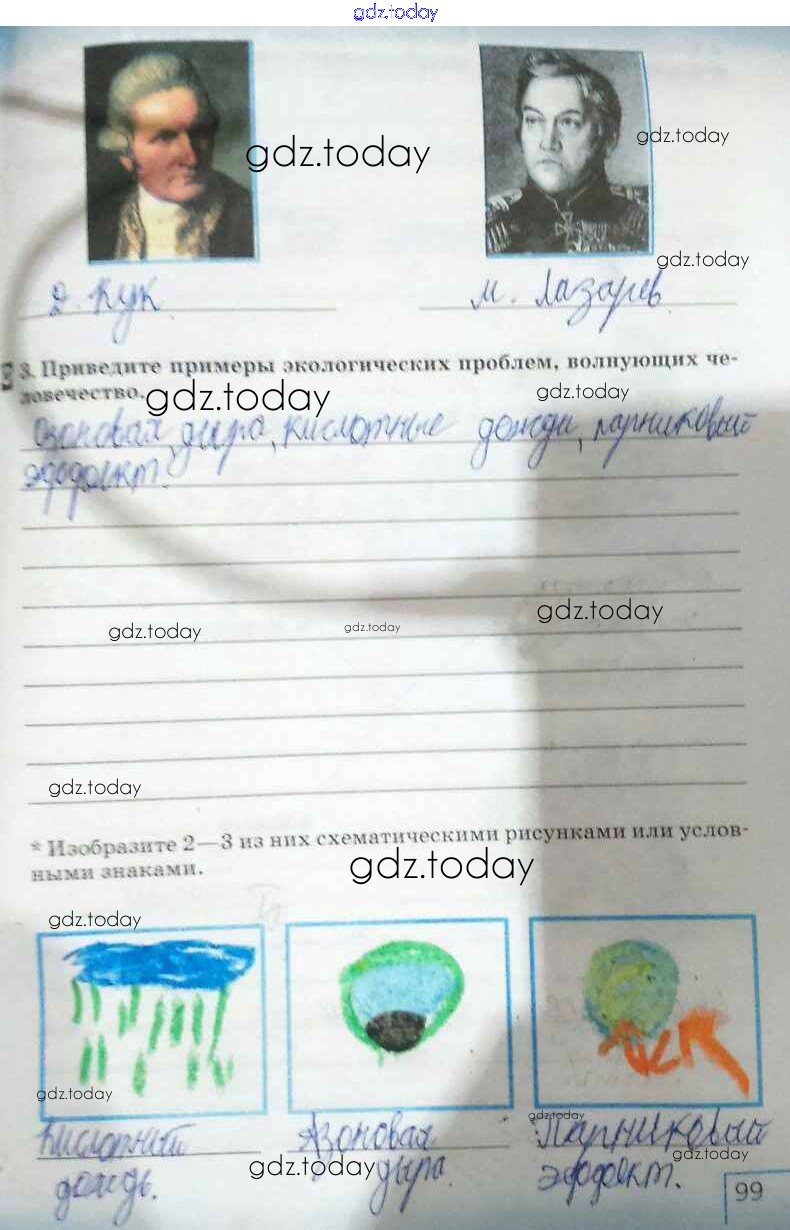 gdz.today
gdz.today
gdz.today
gdz.today
Д. Кук
М. Лазарев
3. Приведите примеры экологических проблем, волнующих че-
ловечество.
gdz.today
gdz.today
Озоновая дыра, кислотные дожди, парниковый
эффект.
gdz.today
gdz.today
gdz.today
gdz.today
* Изобразите 2—3 из них схематическими рисунками или услов-
ными знаками.
gdz.today
gdz.today
gdz.today
gdz.today
Кислотный Озоновая Парниковый
gdz.today
gdz.today
дождь. дыра. эффект.
99